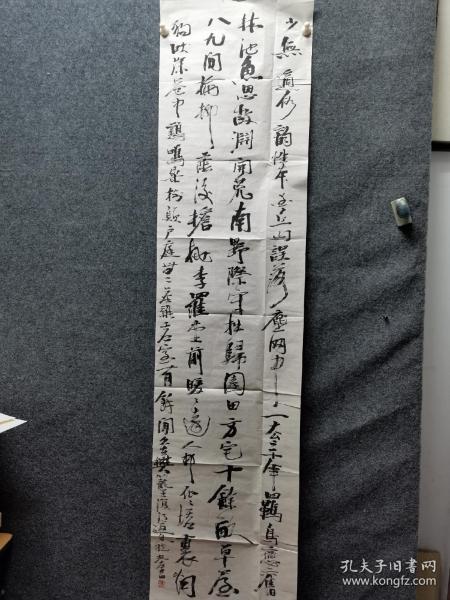 少無適俗韻性本愛丘山誤落塵网中一去三十年羈鳥戀舊
林池魚思故淵開荒南野際守拙歸園田方宅十餘畝草屋
八九間榆柳蔭後簷桃李羅堂前曖々遠人村依々墟里烟
狗吠深巷中鷄鳴桑樹顛戶庭無塵雜虛室有餘閒久在樊籠裏復得返自然
孔夫子旧书网
kongfz.com